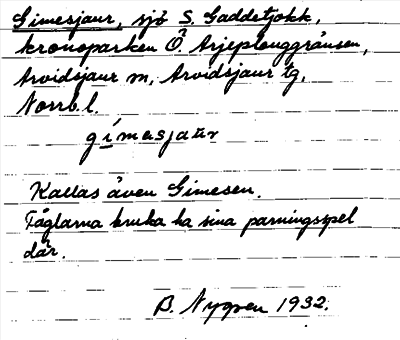 Gimesjaur, sjö S. Gaddetjokk,
kronoparken Ö. Arjeplouggränsen,
Arvidsjaur m, Arvidsjaur tg,
Norrb. l.
gímesjau̯r
Kallas även Gimesen.
Fåglarna bruka ha sina parningsspel
där.
B. Nygren 1932.